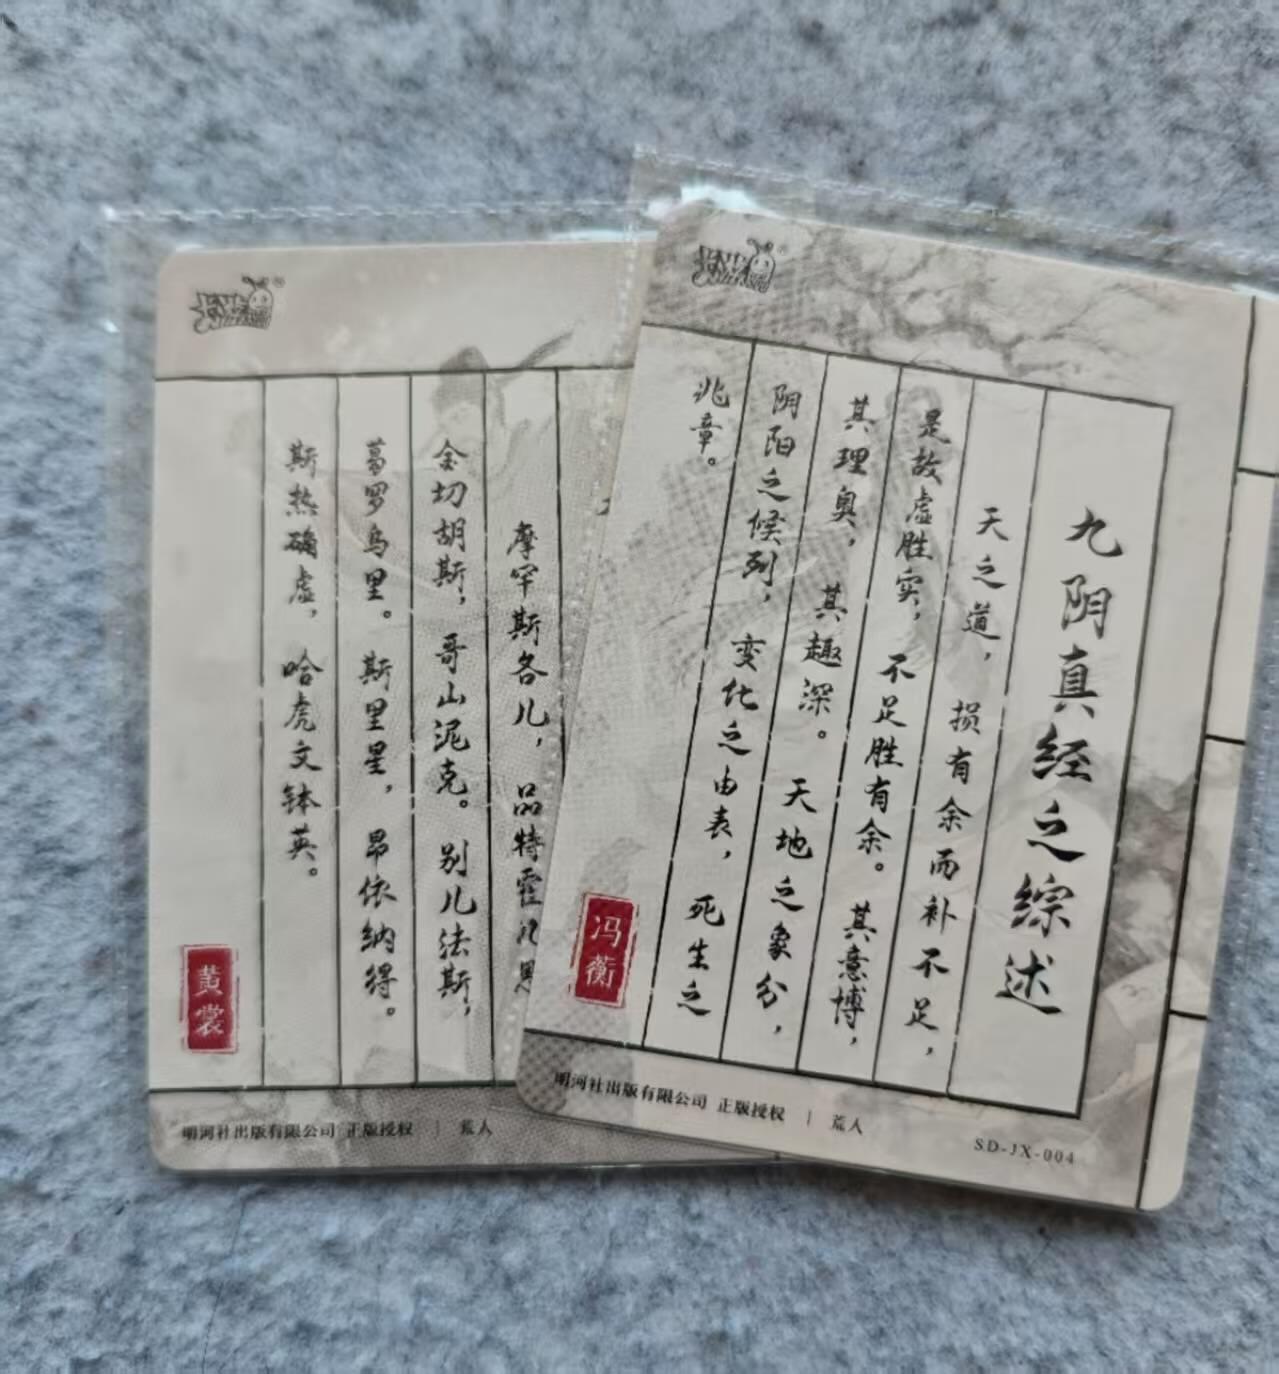 九阴真经之综述
天之道，损有余而补不足，
是故虚胜实，不足胜有余。其意博，
其理奥，其趣深。天地之象分，
阴阳之候列，变化之由表，死生之
兆章。
冯蘅
明河社出版有限公司 正版授权 | 荒人
SD-JX-004
摩罕斯各儿，品特霍几恩
金切胡斯，哥山泥克。别儿法斯，
葛罗乌里。斯里星，昂依纳得。
斯热确虚，哈虎文钵英。
黄裳
明河社出版有限公司 正版授权 | 荒人